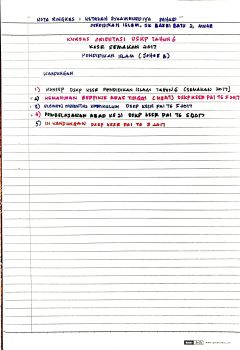 NOTA RINGKAS :
PENDIDIKAN ISLAM, SK BAKRI BATU 2, MUAR
KURSUS ORIENTASI DSKP TAHUN 5
KSSR SEMAKAN 2017
PENDIDIKAN ISLAM
KANDUNGAN
1) KONSEP DSKP KSSR PENDIDIKAN ISLAM TAHUN 5 (SEMAKAN 2017)
2) KEMAHIRAN BERFIKIR ARAS TINGGI (KBAT) DSKP KSSR PAI T5 S2017
3) ELEMEN MERENTAS KURIKULUM DSKP KSSR PAI T5 S2017
4) PEMBELAJARAN ABAD KE 21 DSKP KSSR PAI T5 S2017
5) ISI KANDUNGAN DSKP KSSR PAI T5 S2017